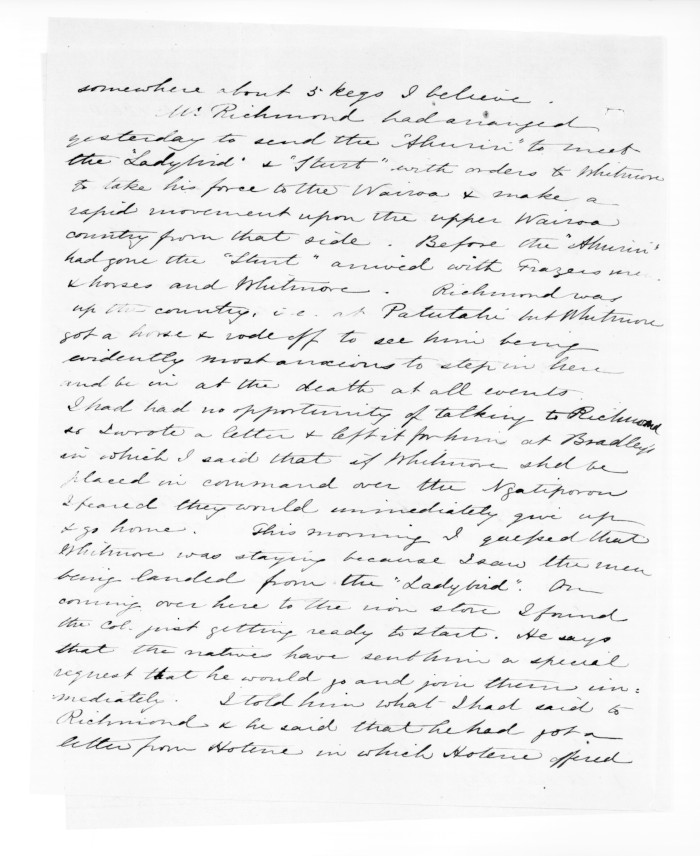 somewhere about 5 kegs I believe.
Mr Richmond had arranged
yesterday to send the "Ahuriri" to meet
the "Ladybird" & "Sturt" with orders to Whitmore
to take his force to the Wairoa & make a
rapid movement upon the upper Wairoa
country from that side. Before the "Ahuriri"
had gone the "Sturt" arrived with Frazers me
& horses and Whitmore. Richmond was
up the country, i.e. at Patutahi but Whitmore
got a horse & rode off to see him being
evidently most anxious to step in here
and be in at the death at all events.
I had had no opportunity of talking to Richmond
so I wrote a letter & left it for him at Bradley's
in which I said that if Whitmore shd be
placed in command over the Ngatiporou
I feared they would immediately give up
& go home. This morning I guessed that
Whitmore was staying because I saw the men
being landed from the "Ladybird". On
coming over here to the iron store I found
the Col. just getting ready to start. He says
that the natives have sent him a special
request that he would go and join them im=
mediately. I told him what I had said to
Richmond & he said that he had got a
letter from Hotene in which Hotene offered